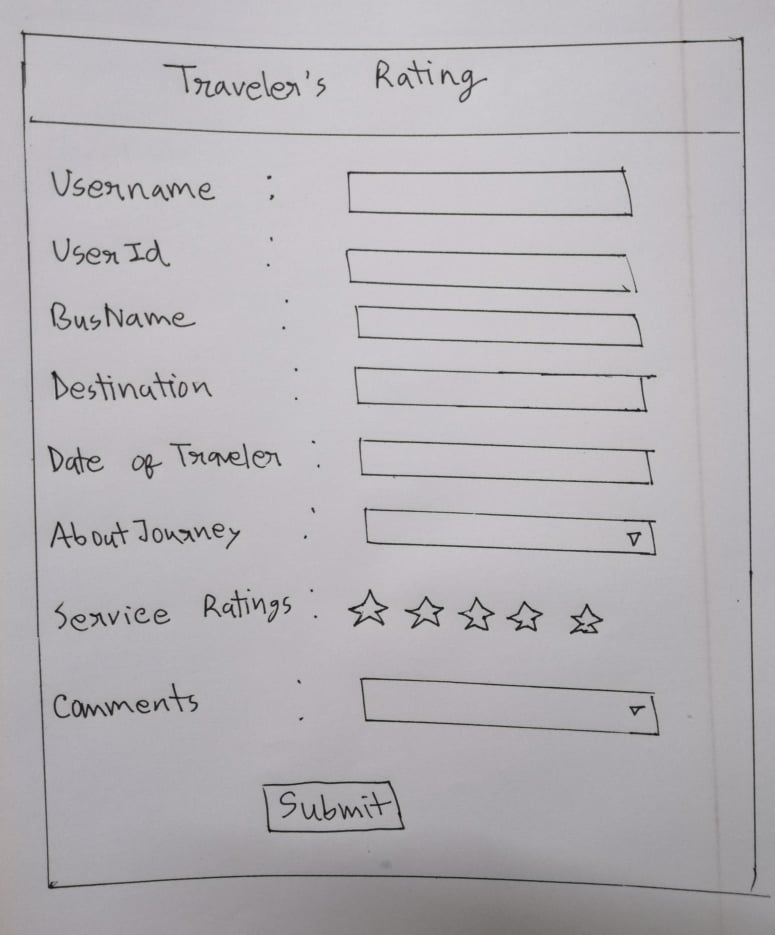 Traveler's Rating
Username :
User Id :
BusName :
Destination :
Date of Traveler :
About Journey :
Service Ratings :
Comments :
Submit